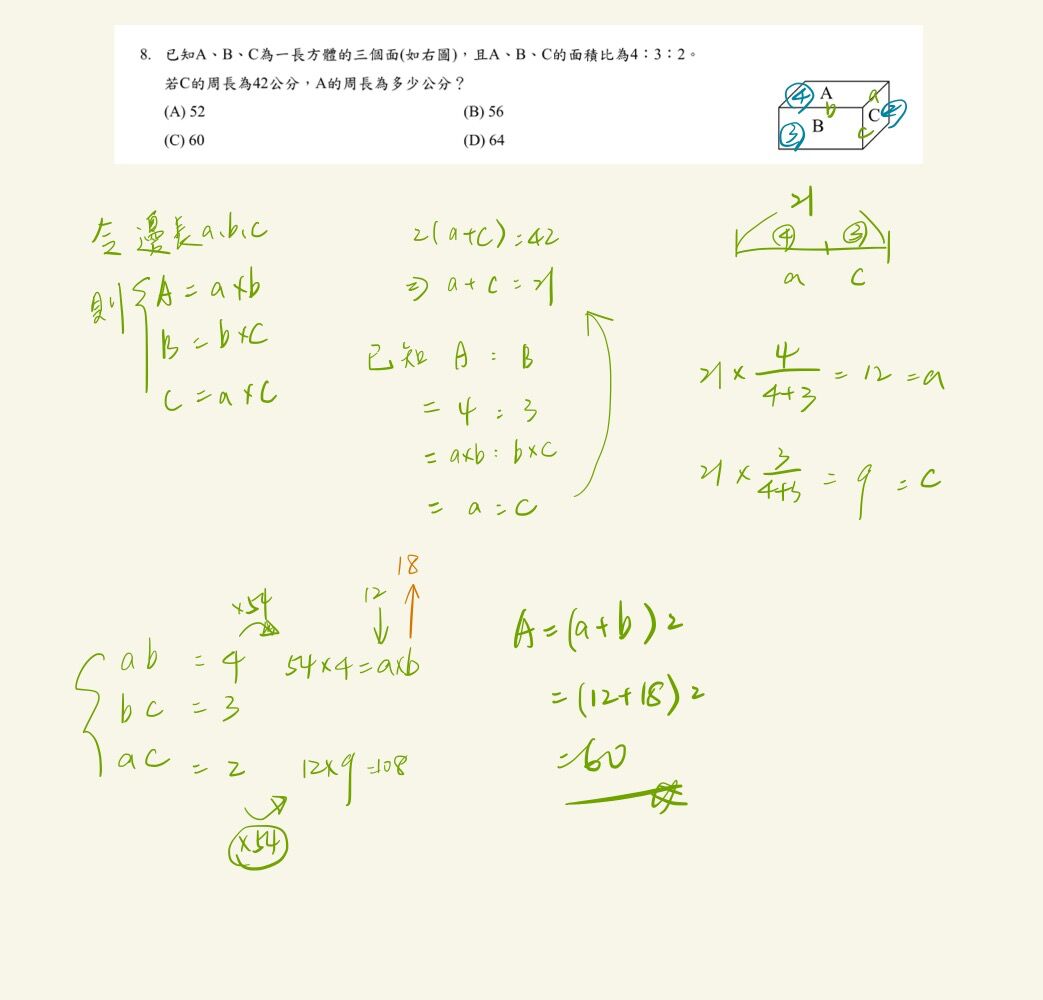 8. 已知A、B、C為一長方體的三個面(如右圖)，且A、B、C的面積比為4：3：2。
若C的周長為42公分，A的周長為多少公分？
(A) 52
(B) 56
(C) 60
(D) 64
④ A a
b
③ B C ②
c
令邊長a,b,c
則 { A = a×b
B = b×c
C = a×c
2(a+c)=42
⇒ a+c=21
已知 A : B
= 4 : 3
= a×b : b×c
= a : c
21
④ ③
a c
21 × 4/(4+3) = 12 = a
21 × 3/(4+3) = 9 = c
×54
12
18
{ ab = 4 54×4=a×b
bc = 3
ac = 2 12×9=108
×54
A=(a+b)2
=(12+18)2
=60